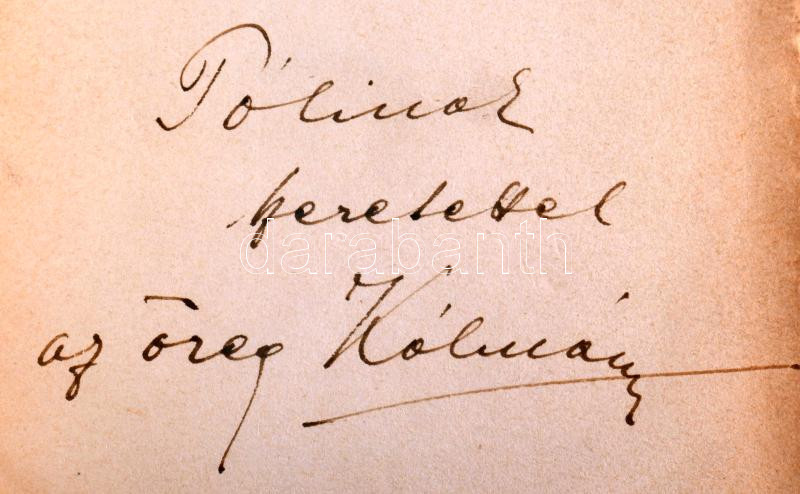 Pólinak
szeretettel
darabanth
az öreg Kálmán